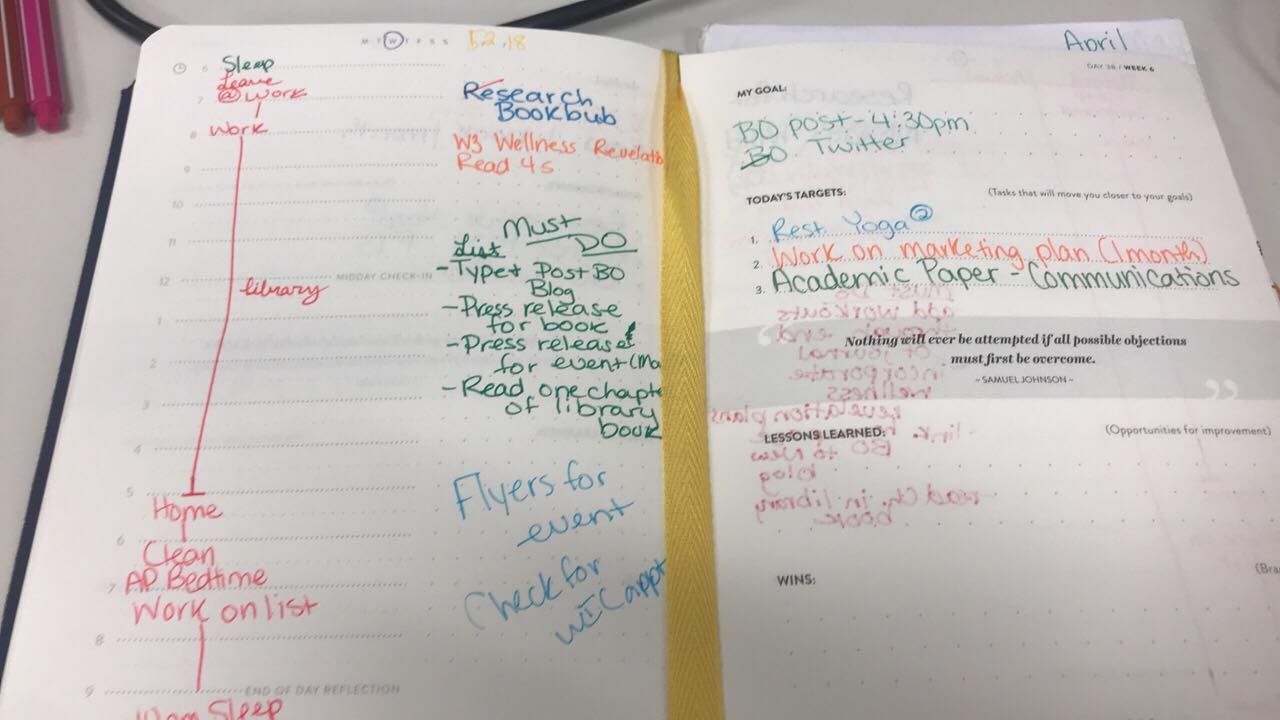 M T W T F S S 5.2.18
6 Sleep
Leave
7 @ Work
Work
8
9
10
11
12 MIDDAY CHECK-IN
library
1
2
3
4
5
Home
6
Clean
7 AP Bedtime
Work on list
8
9 END OF DAY REFLECTION
Sleep
Research
Bookbub
W3 Wellness
Read 4s
Must
List DO
- Type + Post BO
Blog
- Press release
for book
- Press release
for event (Ma
- Read one chapt
of library
book
Flyers for
event
Check for
WIC appt
April
DAY 38 / WEEK 6
MY GOAL:
BO post - 4:30pm
BO Twitter
TODAY'S TARGETS: (Tasks that will move you closer to your goals)
1. Rest Yoga
2. Work on marketing plan (1 month)
3. Academic Paper - Communications
“ Nothing will ever be attempted if all possible objections
must first be overcome.
~ SAMUEL JOHNSON ~ ”
LESSONS LEARNED: (Opportunities for improvement)
WINS: (Bra